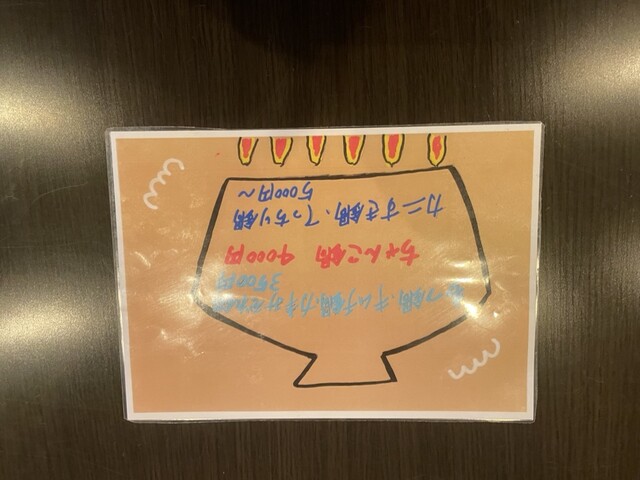 もつ鍋、キムチ鍋、
3500円
ちゃんこ鍋 4000円
カニすき鍋、てっちり鍋
5000円〜